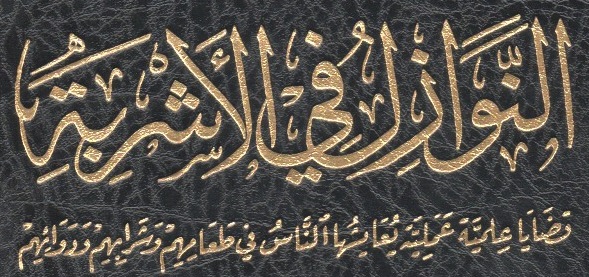 النَّوَازِلُ فِي الأَشْرِبَةِ
قَضَايَا عِلمِيَّة عَمَلِيَّة يُعَايِشُهَا النَّاسُ فِي طَعَامِهِمْ وَشَرَابِهِمْ وَدَوَائِهِمْ